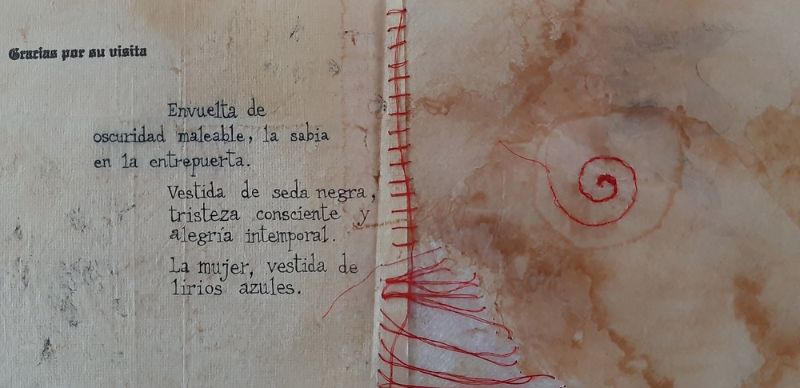 Gracias por su visita
Envuelta de
oscuridad maleable, la sabia
en la entrepuerta.
Vestida de seda negra,
tristeza consciente y
alegría intemporal.
La mujer, vestida de
lirios azules.